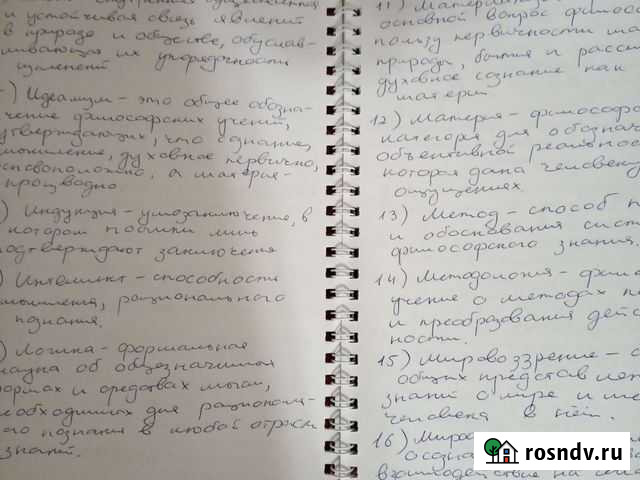 и устойчивая связь явлений
в природе и обществе, обуслав-
ливающая их упорядочность
) Идеализм - это общее обозна-
чение философских учений,
утверждающих, что сознание,
мышление, духовное первично,
основоположно, а материя -
производно
) Индукция - умозаключение, в
котором посылки лишь
подтверждают заключения
) Интеллект - способности
мышления, рационального
познания.
) Логика - формальная
наука об общезначимых
формах и средствах мысли,
необходимых для рациональн-
ого познания в любой отрасли
знаний.
11) Материализм
основной вопрос филосо
пользу первичности ма
природы, бытия и расс
духовное сознание как
материи
12) Материя - философ
категория для обознач
объективной реальнос
которая дана человеку
ощущениях.
13) Метод - способ п
и обоснования сист
философского знания.
14) Методология - фил
учение о методах п
и преобразования дейс
ности.
15) Мировоззрение - с
общих представлен
знаний о мире и ме
человека в нём.
16) Миро
осозна
взаимодействие на
rosndv.ru